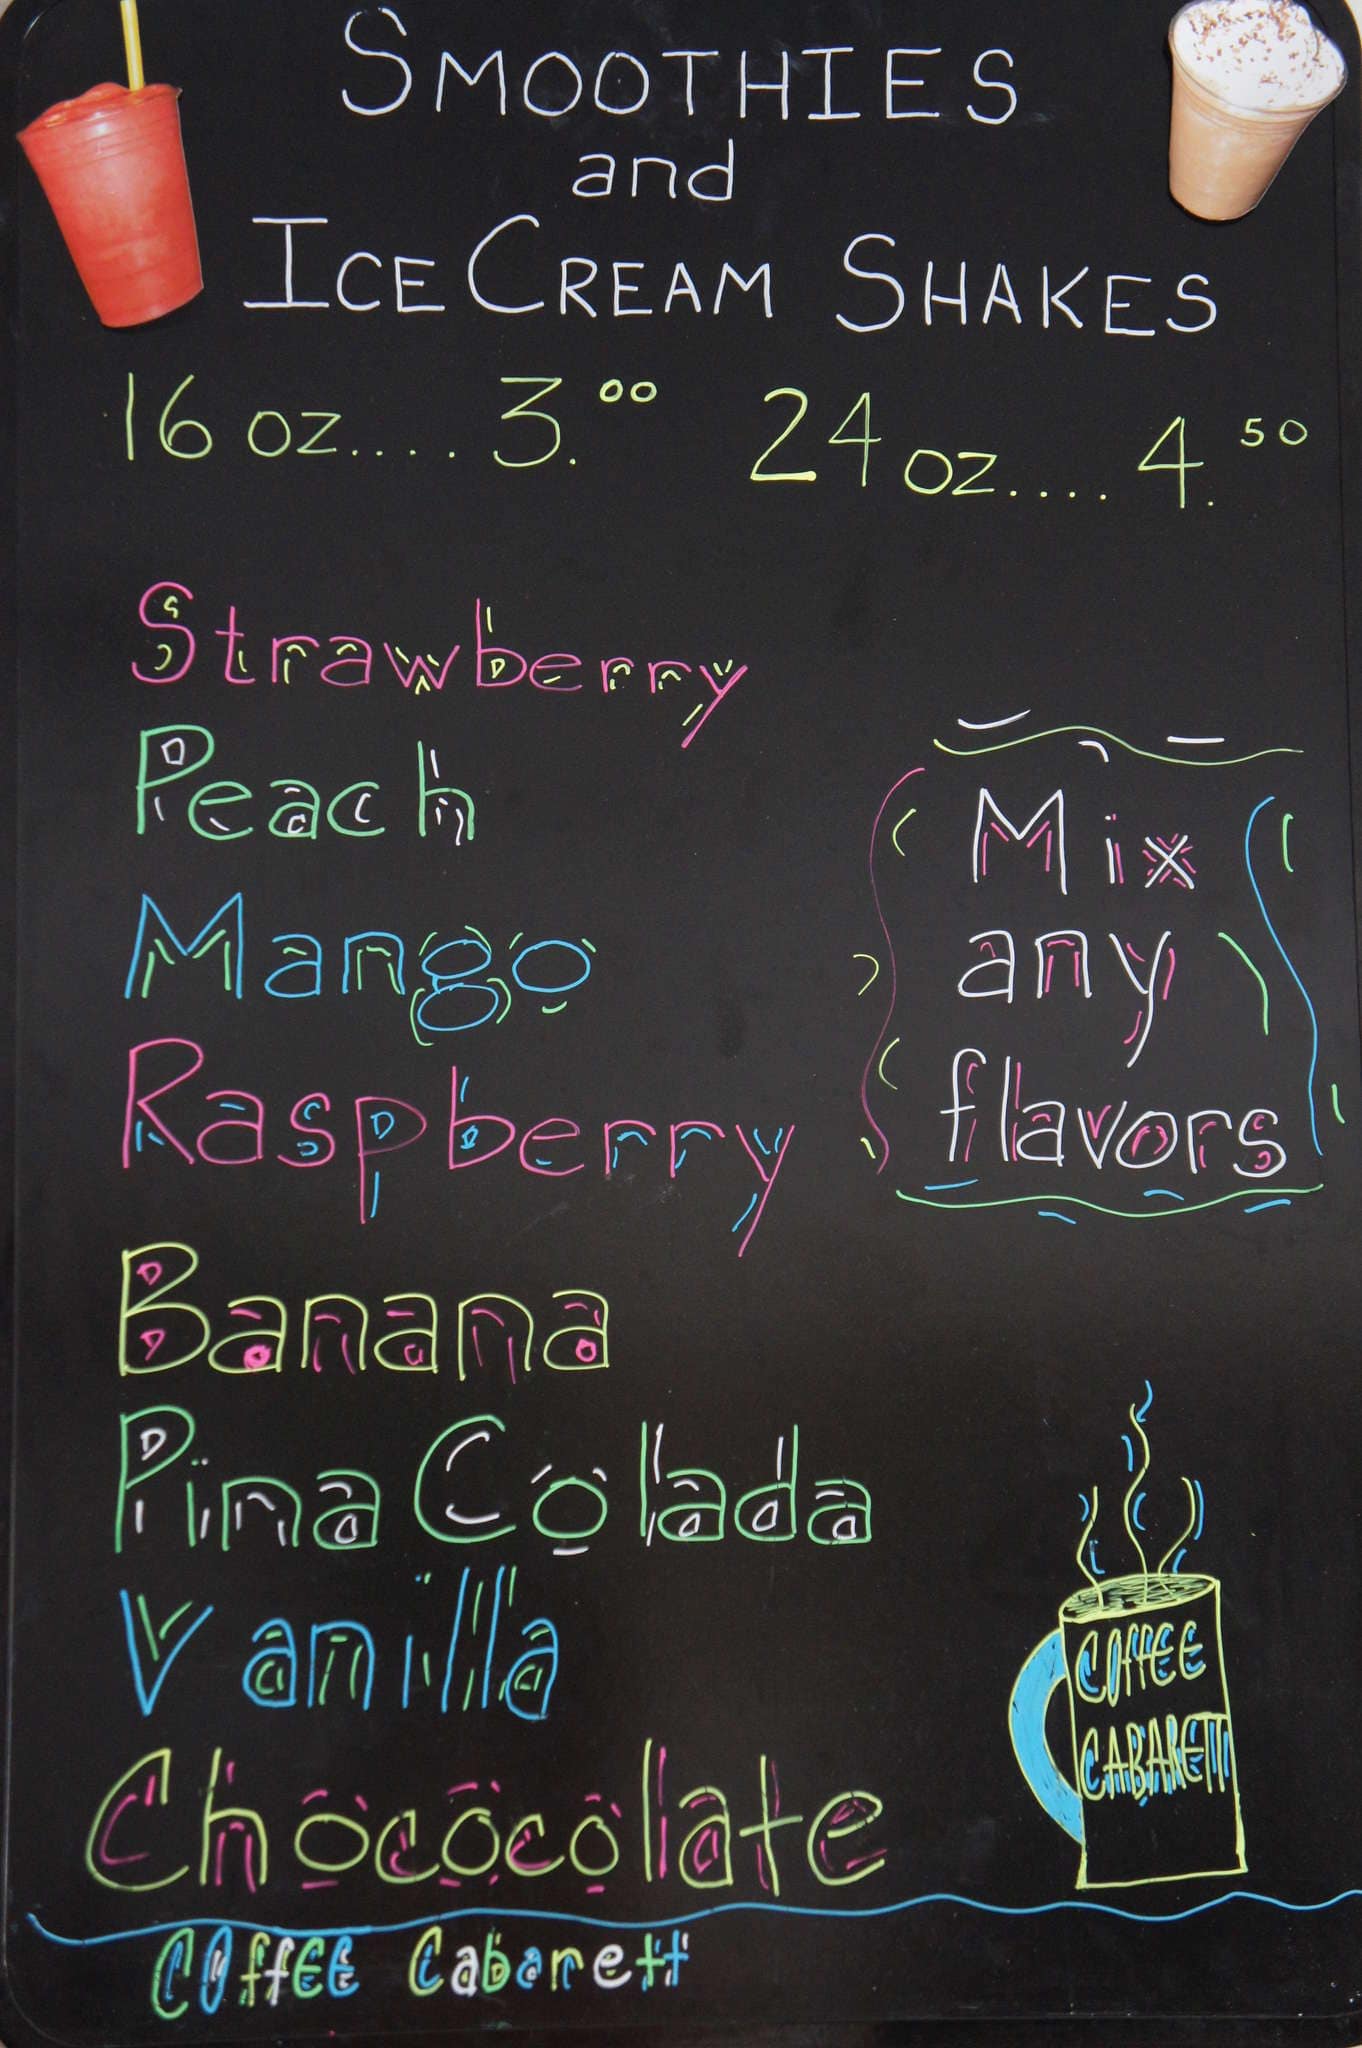 SMOOTHIES
and
ICE CREAM SHAKES
16 oz.... 3.00 24 oz.... 4.50
Strawberry
Peach
Mango
Raspberry
Banana
Pina Colada
Vanilla
Chococolate
Mix
any
flavors
COFFEE
CABARETT
COffEE Cabarett